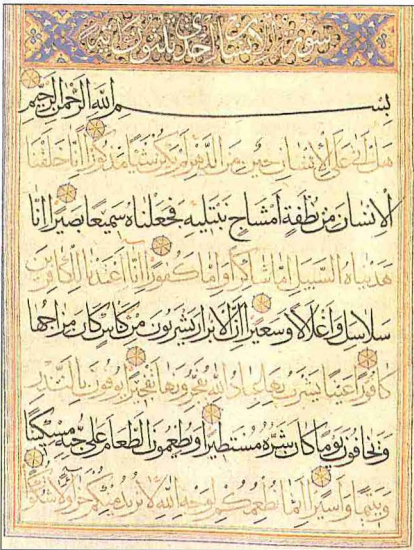 سورة الانسان احدى ثلثون آية
بسم الله الرحمن الرحيم
هَلْ أَتَى عَلَى الْإِنْسَانِ حِينٌ مِنَ الدَّهْرِ لَمْ يَكُنْ شَيْئًا مَذْكُورًا إِنَّا خَلَقْنَا
الْإِنْسَانَ مِنْ نُطْفَةٍ أَمْشَاجٍ نَبْتَلِيهِ فَجَعَلْنَاهُ سَمِيعًا بَصِيرًا إِنَّا
هَدَيْنَاهُ السَّبِيلَ إِمَّا شَاكِرًا وَإِمَّا كَفُورًا إِنَّا أَعْتَدْنَا لِلْكَافِرِينَ
سَلَاسِلَ وَأَغْلَالًا وَسَعِيرًا إِنَّ الْأَبْرَارَ يَشْرَبُونَ مِنْ كَأْسٍ كَانَ مِزَاجُهَا
كَافُورًا عَيْنًا يَشْرَبُ بِهَا عِبَادُ اللَّهِ يُفَجِّرُونَهَا تَفْجِيرًا يُوفُونَ بِالنَّذْرِ
وَيَخَافُونَ يَوْمًا كَانَ شَرُّهُ مُسْتَطِيرًا وَيُطْعِمُونَ الطَّعَامَ عَلَى حُبِّهِ مِسْكِينًا
وَيَتِيمًا وَأَسِيرًا إِنَّمَا نُطْعِمُكُمْ لِوَجْهِ اللَّهِ لَا نُرِيدُ مِنْكُمْ جَزَاءً وَلَا شُكُورًا